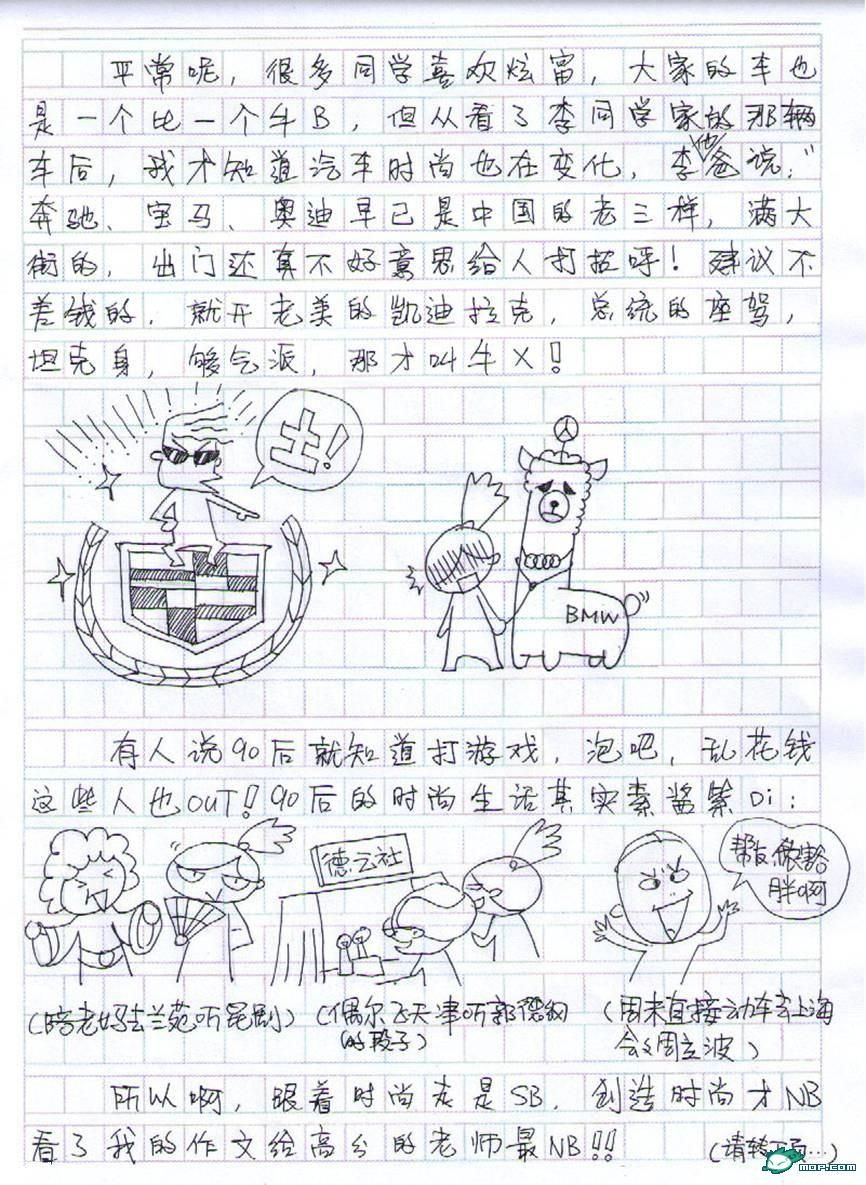 平常呢，很多同学喜欢炫富，大家的车也
是一个比一个牛B，但从看了李同学家的那辆
车后，我才知道汽车时尚也在变化，李他爸说："
奔驰、宝马、奥迪早已是中国的老三样，满大
街的，出门还真不好意思给人打招呼！建议不
差钱的，就开老美的凯迪拉克，总统的座驾，
坦克身，够气派，那才叫牛X！
土！
BMW
有人说90后就知道打游戏，泡吧，乱花钱
这些人也OUT！90后的时尚生活其实素酱紫Di：
德云社
帮友
胖啊
（陪老妈去兰苑听昆剧）
（偶尔飞天津听郭德纲
的段子）
（周末直接动车去上海
会会周立波）
所以啊，跟着时尚走是SB，创造时尚才NB
看了我的作文给高分的老师最NB！！
（请转下页…）
mop.com